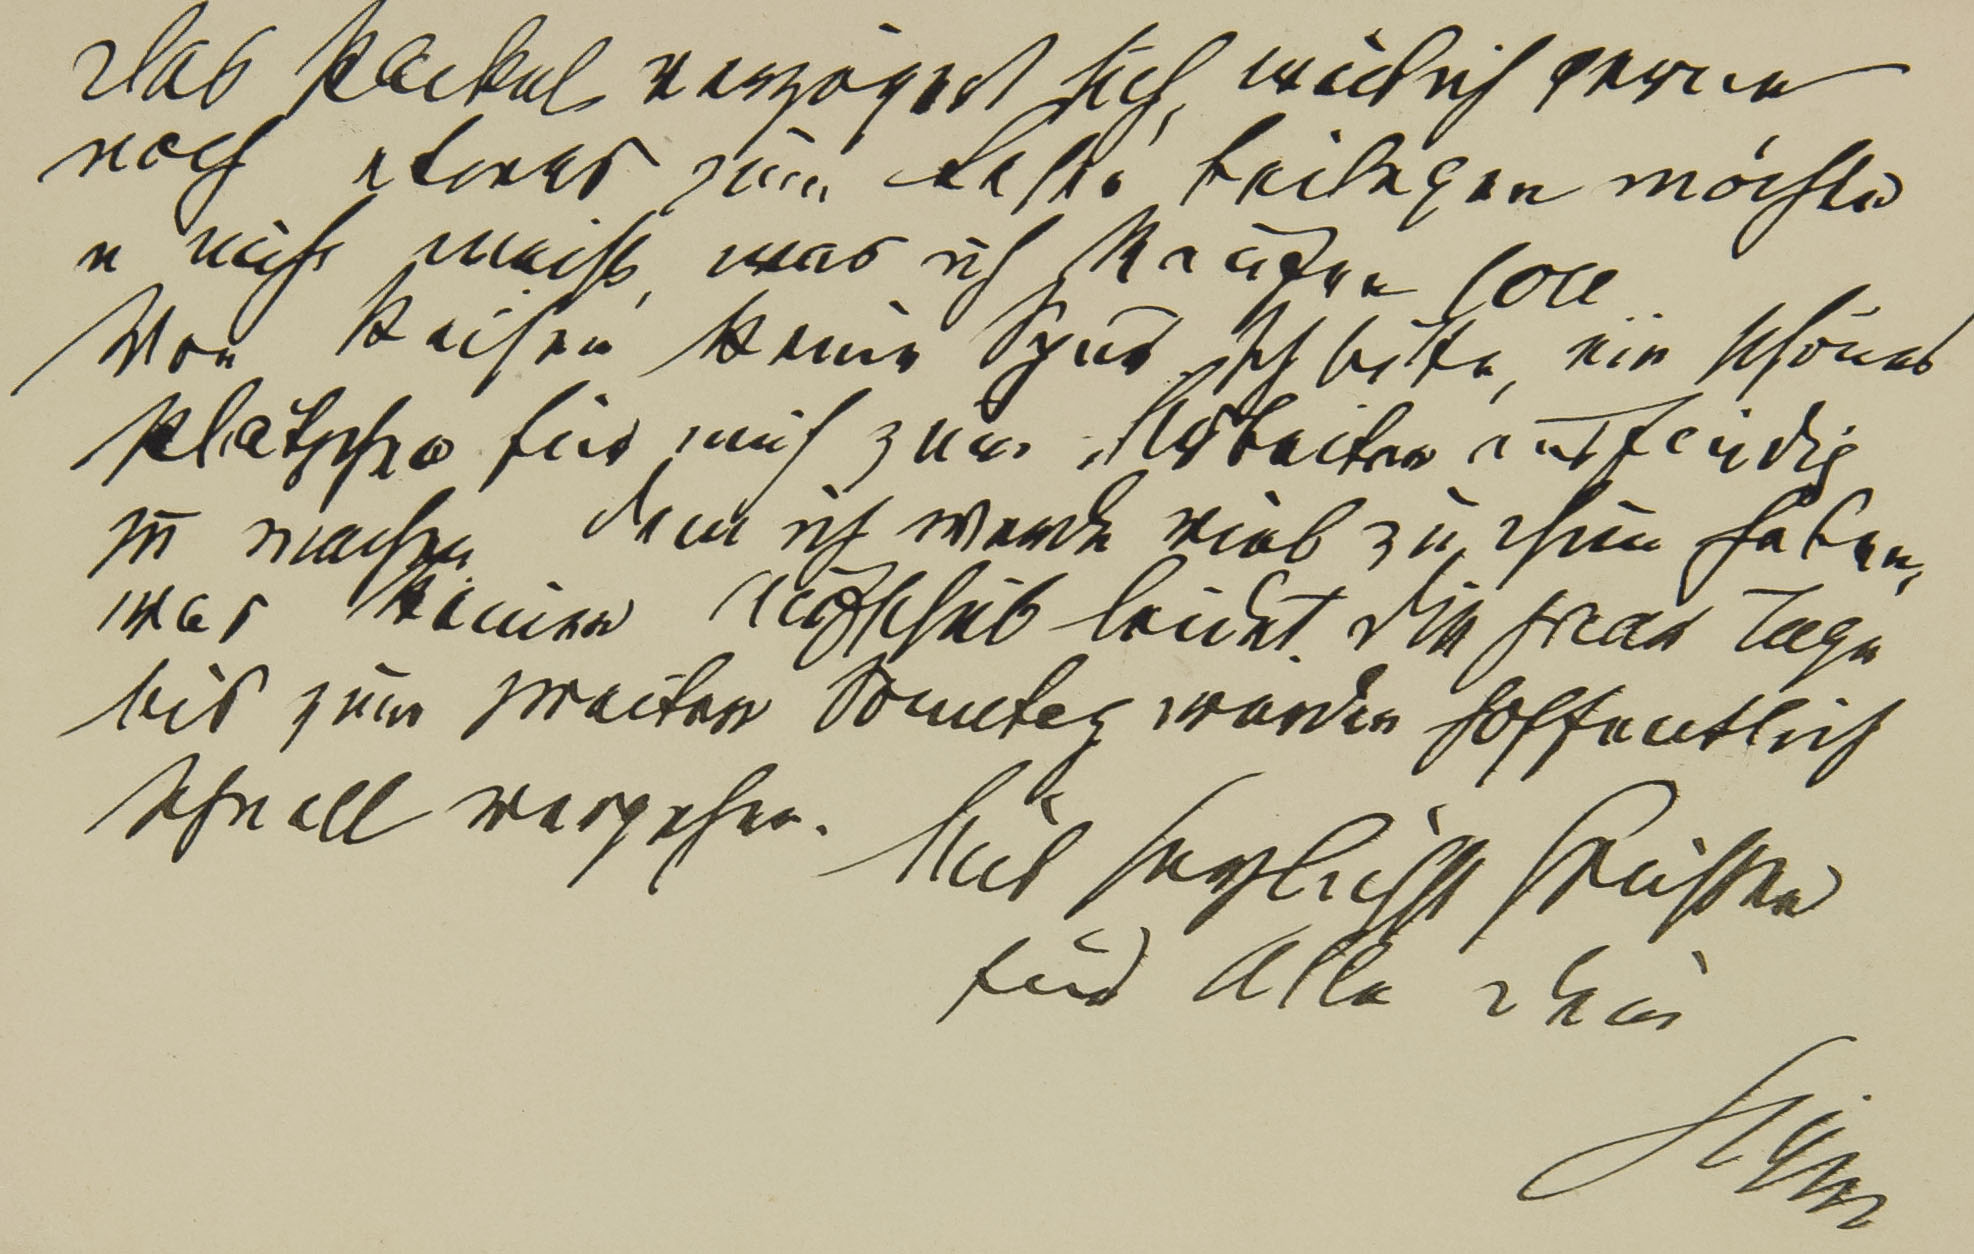 Das Packel verzögert sich, weil ich gerne
noch etwas zum beilegen möchte
u nicht weiß, was ich kaufen soll
Von Reisen keine Spur. Ich bitte, ein schönes
Plätzchen für mich zum Arbeiten ausfindig
zu machen denn ich werde viel zu thun haben,
was keinen Aufschub leidet. Die paar Tage
bis zum zweiten Sonntag werden hoffentlich
schnell vergehen. Mit herzlichst Grüßen
für Alle Dein
Sigm